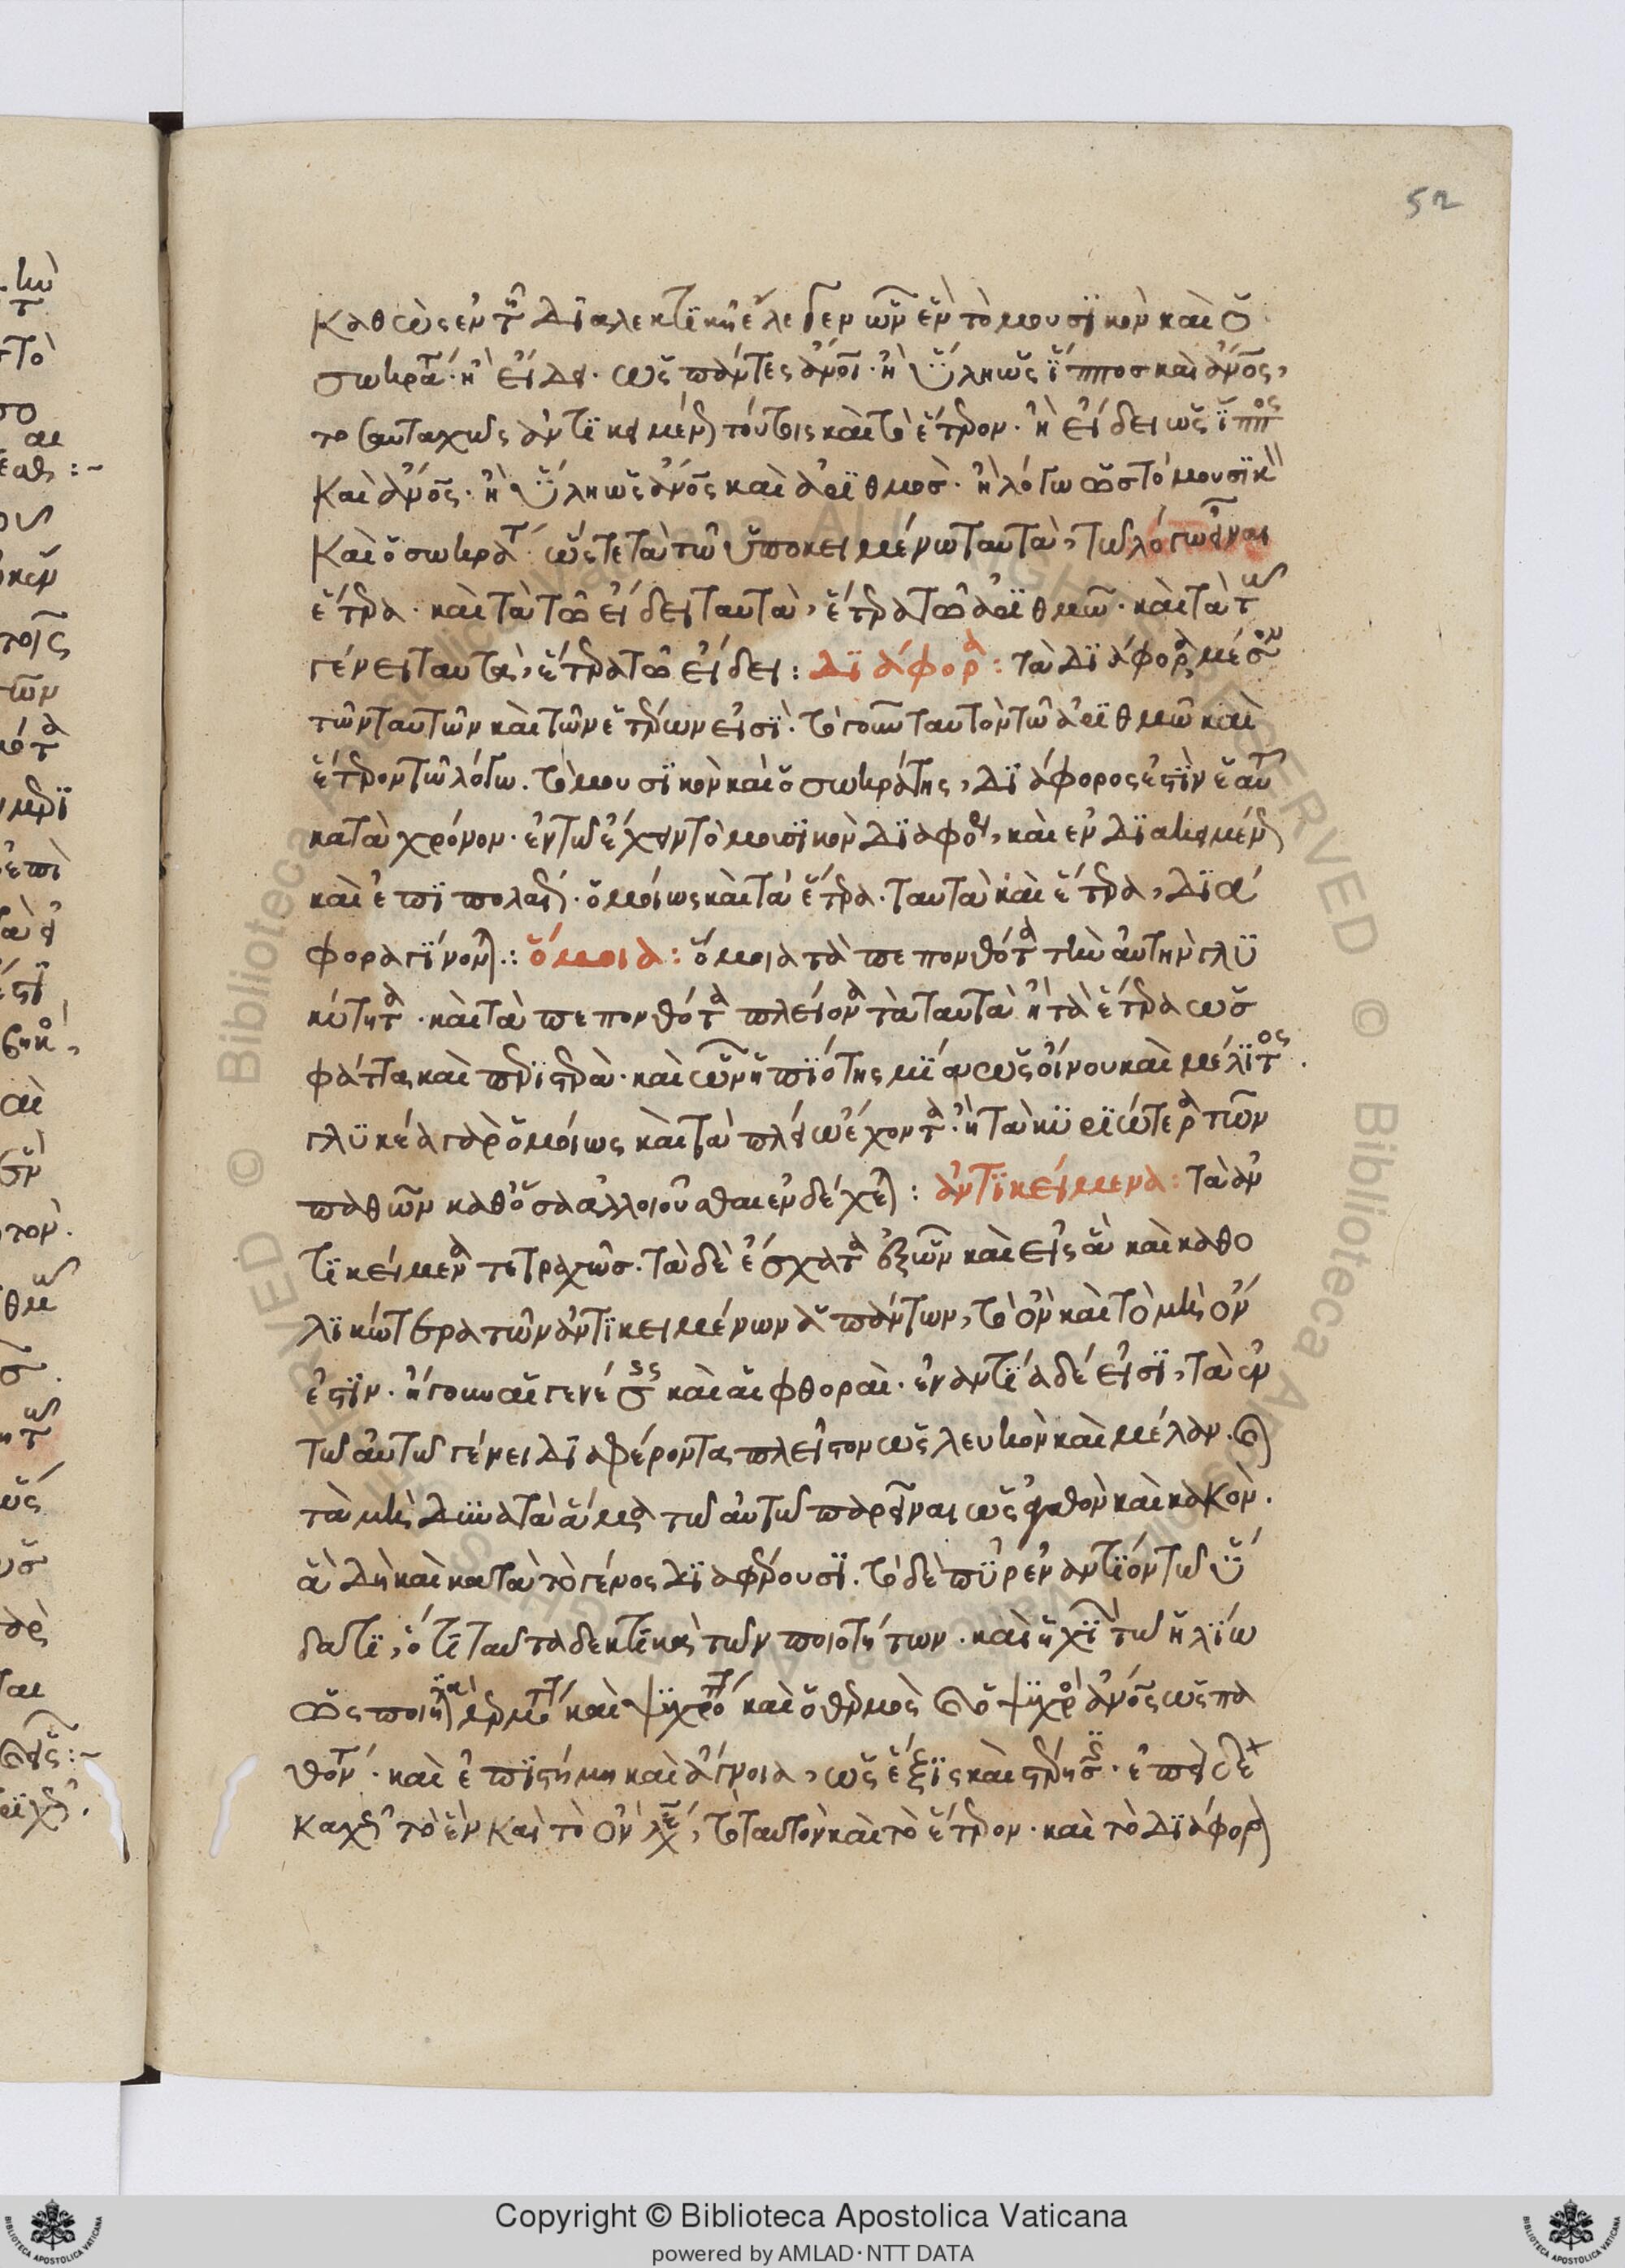 52
Καθὼς ἐν τῆ Διαλεκτικῆ ἔλεγεν ὧν ἓν τὸ μουσικὸν καὶ ὁ
σωκράτ· ἢ εἴδει· ὡς πάντες ἄνοι· ἢ ὕλη ὡς ἵππος καὶ ἄνος,
καὶ ἄνος· ἢ ὕλη ὡς ἄνος καὶ ἀριθμοσ· ἢ λόγω ὡς τὸ μουσικὸν
Καὶ ὁ σωκράτ· ὥστε τὰ τῶ ὑποκειμένω ταυτὰ, τῶ λόγω εἶναι
ἕτερα· καὶ τὰ τῶ εἴδει ταυτὰ, ἕτερα τῶ ἀριθμῶ· καὶ τὰ τῶ
γένει ταυτὰ, ἕτερα τῶ εἴδει: Διάφορα: τὰ Διάφορα μέσον
τῶν ταυτῶν καὶ τῶν ἑτέρων εἰσὶ· τὸ γοῦν ταυτὸν τῶ ἀριθμῶ καὶ
ἕτερον τῶ λόγω. τὸ μουσικὸν καὶ ὁ σωκράτης, Διάφορος ἐστὶν ἑαυτ
κατὰ χρόνον· ἐν τῶ ἔχειν τὸ μουσικὸν Διάφορον, καὶ ἐν Διακειμένω
καὶ ἐπιπολαίω· ὁμοίως καὶ τὰ ἕτερα· ταυτὰ καὶ ἕτερα, Διά
φορα γίνονται: ὅμοια: ὅμοια τὰ πεπονθότα τὴν αὐτὴν γλυ
κύτητα· καὶ τὰ πεπονθότα πλείονα τὰ ταυτὰ ἢ τὰ ἕτερα ὡσ
φάττα καὶ περιστερὰ· καὶ ὧν ἡ ποιότης μία ὡς οἴνου καὶ μέλιτος.
γλυκέα γὰρ ὁμοίως καὶ τὰ πλείω ἔχοντα· ἢ τὰ κυριώτερα τῶν
παθῶν καθ' ὅσα ἀλλοιοῦσθαι ἐνδέχεται: ἀντικείμενα: τὰ ἀν
τικείμενα τετραχῶσ· τὰ δὲ ἔσχατα ἐξ ὧν καὶ εἰς ἃ καὶ καθο
λικώτερα τῶν ἀντικειμένων ἁπάντων, τὸ ὂν καὶ τὸ μὴ ὄν
ἐστιν· ἤγουν αἱ γενέσεις καὶ αἱ φθοραὶ· ἐναντία δέ εἰσι, τὰ ἐν
τῶ αὐτῶ γένει Διαφέροντα πλεῖστον ὡς λευκὸν καὶ μέλαν· καὶ
τὰ μὴ Δυνατὰ ἅμα τῶ αὐτῶ παρεῖναι ὡς ἀγαθὸν καὶ κακὸν.
ἃ Δὴ καὶ κατὰ τὸ γένος Διαφέρουσι. τὸ δὲ πῦρ ἐναντίον τῶ ὕ
δατι, ὅτι ταῦτα δεκτικὰ τῶν ποιοτήτων· καὶ ἡ χιὼν τῶ ἡλίω
θον· καὶ ἐπιστήμη καὶ ἄγνοια, ὡς ἕξις καὶ στέρησις· ἐπεὶ δὲ
καχῶς τὸ ἓν καὶ τὸ ὂν λέγεται, τὸ ταυτὸν καὶ τὸ ἕτερον· καὶ τὸ Διάφορον
Copyright © Biblioteca Apostolica Vaticana
powered by AMLAD·NTT DATA